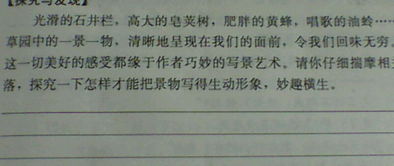 【探究与发现】
光滑的石井栏，高大的皂荚树，肥胖的黄蜂，唱歌的油蛉……
草园中的一景一物，清晰地呈现在我们的面前，令我们回味无穷。
这一切美好的感受都缘于作者巧妙的写景艺术。请你仔细揣摩相
落，探究一下怎样才能把景物写得生动形象，妙趣横生。